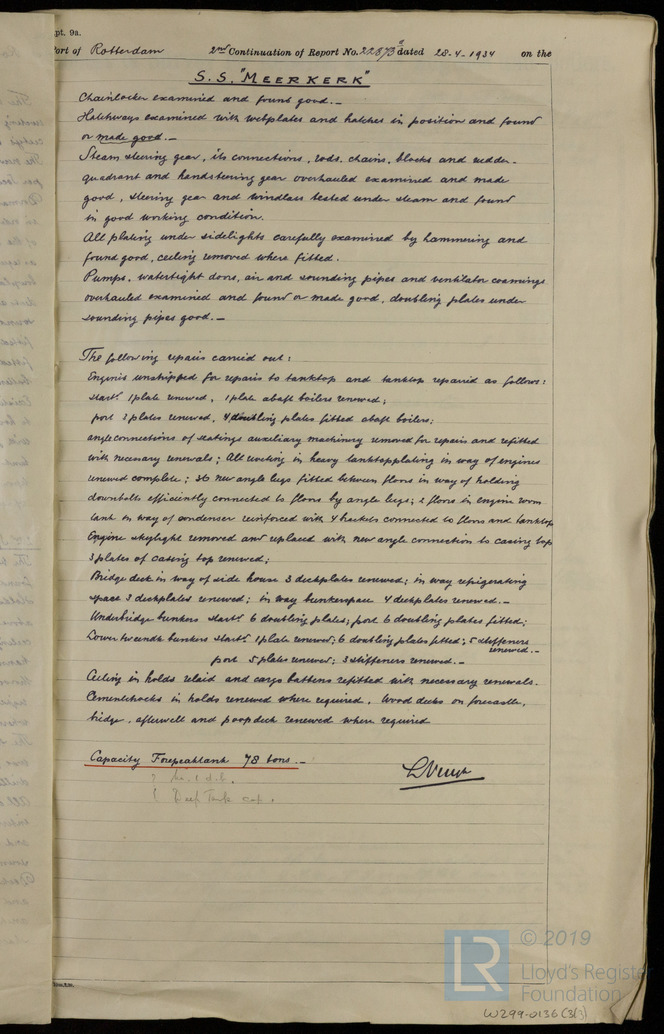 pt. 9a.
Port of Rotterdam 2nd Continuation of Report No. 22873a dated 28-4-1934 on the
S.S. "MEERKERK"
Chainlocker examined and found good.—
Hatchways examined with webplates and hatches in position and found
or made good.—
Steam steering gear, its connections, rods, chains, blocks and rudder-
quadrant and handsteering gear overhauled examined and made
good, steering gear and windlass tested under steam and found
in good working condition.
All plating under sidelights carefully examined by hammering and
found good, ceiling removed where fitted.
Pumps, watertight doors, air and sounding pipes and ventilator coamings
overhauled examined and found or made good, doubling plates under
sounding pipes good.—
The following repairs carried out:
Engines unshipped for repairs to tanktop and tanktop repaired as follows:
starb. 1 plate renewed, 1 plate abaft boilers renewed;
port 2 plates renewed, 4 doubling plates fitted abaft boilers;
angleconnections of seatings auxiliary machinery removed for repairs and refitted
with necessary renewals; All riveting in heavy tanktopplating in way of engines
renewed complete; 36 new angle lugs fitted between floors in way of holding
downbolts efficiently connected to floors by angle lugs; 2 floors in engine room
tank in way of condenser reinforced with 4 brackets connected to floors and tanktop
Engine skylight removed and replaced with new angle connection to casing top
3 plates of casing top renewed;
Bridge deck in way of side house 3 deckplates renewed; in way refrigerating
space 3 deckplates renewed; in way bunkerspace 4 deckplates renewed.—
Underbridge bunkers starb. 6 doubling plates; port 6 doubling plates fitted;
Lower tweendk bunkers starb. 1 plate renewed; 6 doubling plates fitted; 5 stiffeners
renewed.—
port 5 plates renewed; 3 stiffeners renewed.—
Ceiling in holds relaid and cargo battens refitted with necessary renewals.
Cementchocks in holds renewed where required. Wood decks on forecastle,
bridge, afterwell and poopdeck renewed where required
Capacity Forepeaktank 78 tons.—
Deep Tank cap.
© 2019
LR
Lloyd's Register
Foundation
W299-0136 (3/3)